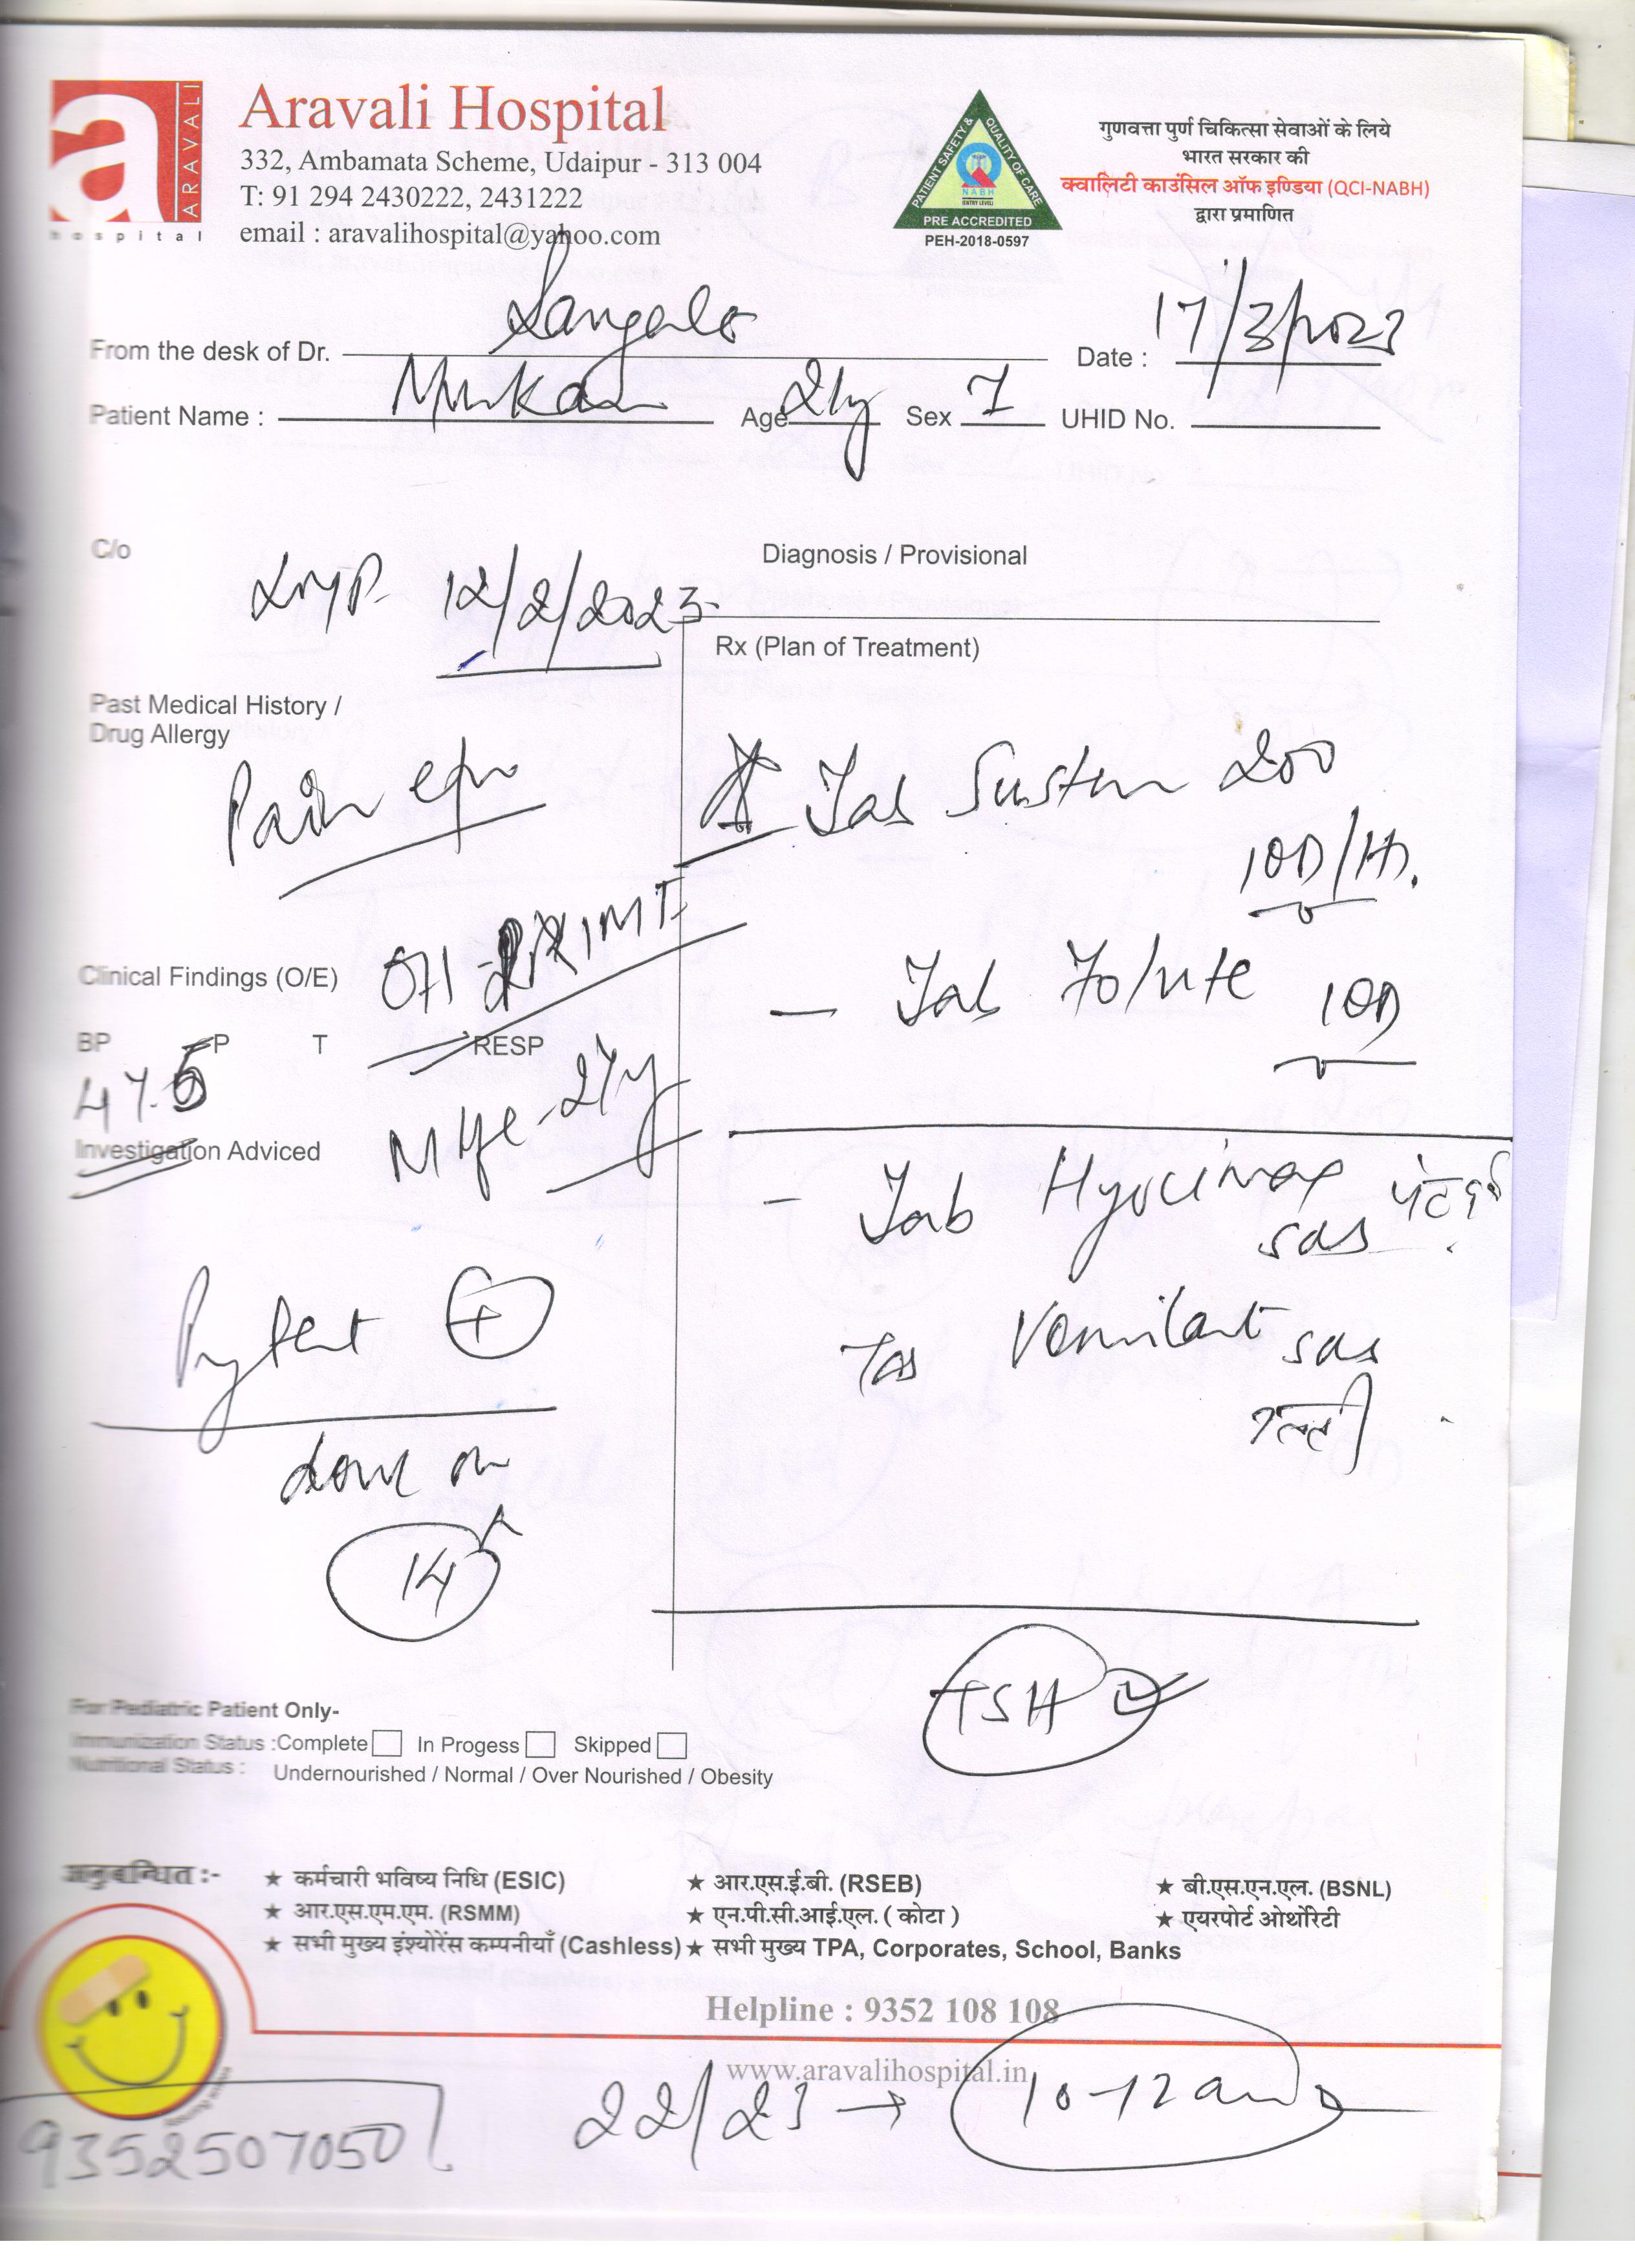 a
ARAVALI
hospital
Aravali Hospital
332, Ambamata Scheme, Udaipur - 313 004
T: 91 294 2430222, 2431222
email : aravalihospital@yahoo.com
PATIENT SAFETY & QUALITY OF CARE
NABH
(ENTRY LEVEL)
PRE ACCREDITED
PEH-2018-0597
गुणवत्ता पुर्ण चिकित्सा सेवाओं के लिये
भारत सरकार की
क्वालिटी काउंसिल ऑफ इण्डिया (QCI-NABH)
द्वारा प्रमाणित
From the desk of Dr.
Date : 17/3/2023
Patient Name : Age 21y Sex F UHID No.
C/o
LMP 12/2/2023
Diagnosis / Provisional
Rx (Plan of Treatment)
Past Medical History /
Drug Allergy
Pain
Tab Susten 200
1OD/HS.
Clinical Findings (O/E)
- Tab Folvite 1OD
BP P T RESP
47.5
Investigation Adviced
- Tab Hyocimax पेट दर्द
sos
test +
Tab Vomilast sos
उल्टी
done on
14
TSH
For Pediatric Patient Only-
Immunization Status :Complete In Progess Skipped
Nutritional Status : Undernourished / Normal / Over Nourished / Obesity
अनुबन्धित :-
★ कर्मचारी भविष्य निधि (ESIC) ★ आर.एस.ई.बी. (RSEB) ★ बी.एस.एन.एल. (BSNL)
★ आर.एस.एम.एम. (RSMM) ★ एन.पी.सी.आई.एल. ( कोटा ) ★ एयरपोर्ट ओर्थोरेटी
★ सभी मुख्य इंश्योरेंस कम्पनीयाँ (Cashless) ★ सभी मुख्य TPA, Corporates, School, Banks
Helpline : 9352 108 108
www.aravalihospital.in
22/23 → 10-12
9352507050